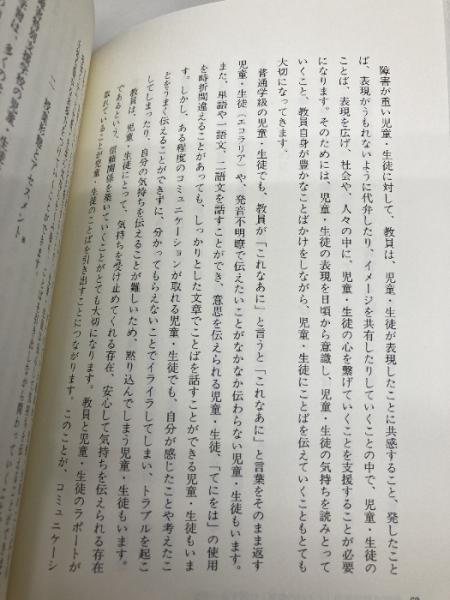 障害が重い児童・生徒に対して、教員は、児童・生徒が表現したことに共感すること、発したこと
ば、表現がうもれないように代弁したり、イメージを共有したりしていくことの中で、児童・生徒の
ことば、表現を広げ、社会や、人々の中に、児童・生徒の心を繋げていくことを支援することが必要
になります。そのためには、児童・生徒の表現を日頃から意識し、児童・生徒の気持ちを読みとって
いくこと、教員自身が豊かなことばかけをしながら、児童・生徒にことばを伝えていくこともとても
大切になってきます。
普通学級の児童・生徒でも、教員が「これなあに」と言うと「これなあに」と言葉をそのまま返す
児童・生徒（エコラリア）や、発音不明瞭で伝えたいことがなかなか伝わらない児童・生徒もいます。
また、単語や一語文、二語文を話すことができ、意思を伝えられる児童・生徒、「てにをは」の使用
を時折間違えることがあっても、しっかりとした文章でことばを話すことができる児童・生徒もいま
す。しかし、ある程度のコミュニケーションが取れる児童・生徒でも、自分が感じたことや考えたこ
とをうまく伝えることができずに、分かってもらえないことでイライラしてしまい、トラブルを起こ
してしまったり、自分の気持ちを伝えることが難しいため、黙り込んでしまう児童・生徒もいます。
教員は、児童・生徒にとって、気持ちを受け止めてくれる存在、安心して気持ちを伝えられる存在
であるという、信頼関係を築いていくことがとても大切になります。教員と児童・生徒のラポートが
取れていることが児童・生徒のことばを引き出すことにつながります。このことが、コミュニケーシ